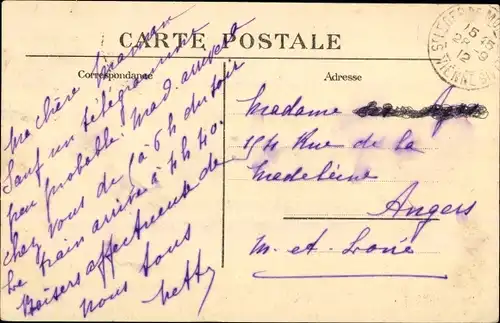 CARTE POSTALE
Correspondance
Ma chère Maman
Sauf un télégramme
peu probable. Mad. arrivera
chez vous de 5 à 6 h du soir
Le train arrive à 4 h 40.
Baisers affectueux de
nous tous
Netty
Adresse
Madame
154 Rue de la
Madeleine
Angers
M. et. Loire
15 15
28 9
12
VIENNE